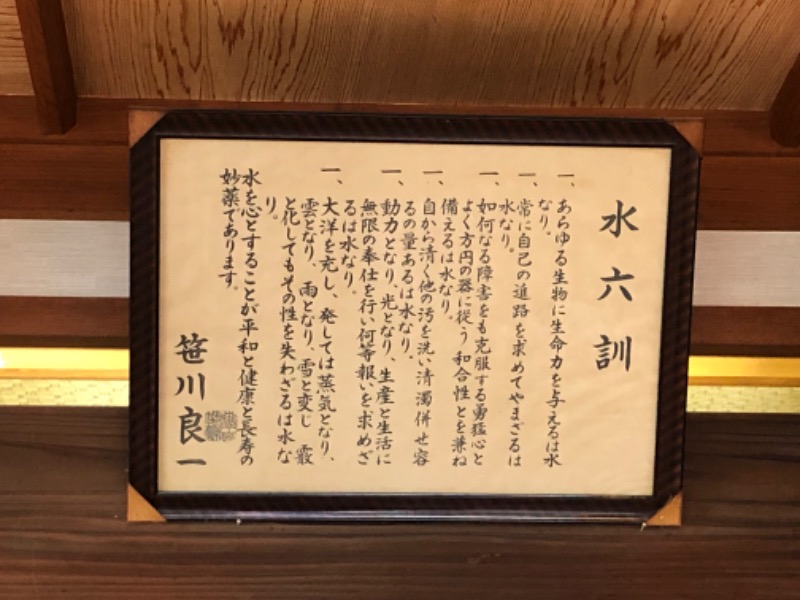 水六訓
一、あらゆる生物に生命力を与えるは水
なり。
一、常に自己の進路を求めてやまざるは
水なり。
一、如何なる障害をも克服する勇猛心と
よく方円の器に従う和合性とを兼ね
備えるは水なり。
一、自から清く他の汚を洗い清濁併せ容
るの量あるは水なり。
一、動力となり、光となり、生産と生活に
無限の奉仕を行い何等報いを求めざ
るは水なり。
一、大洋を充し、発しては蒸気となり、
雲となり、雨となり、雪と変じ霰
と化してもその性を失わざるは水な
り。
水を心とすることが平和と健康と長寿の
妙薬であります。
笹川良一